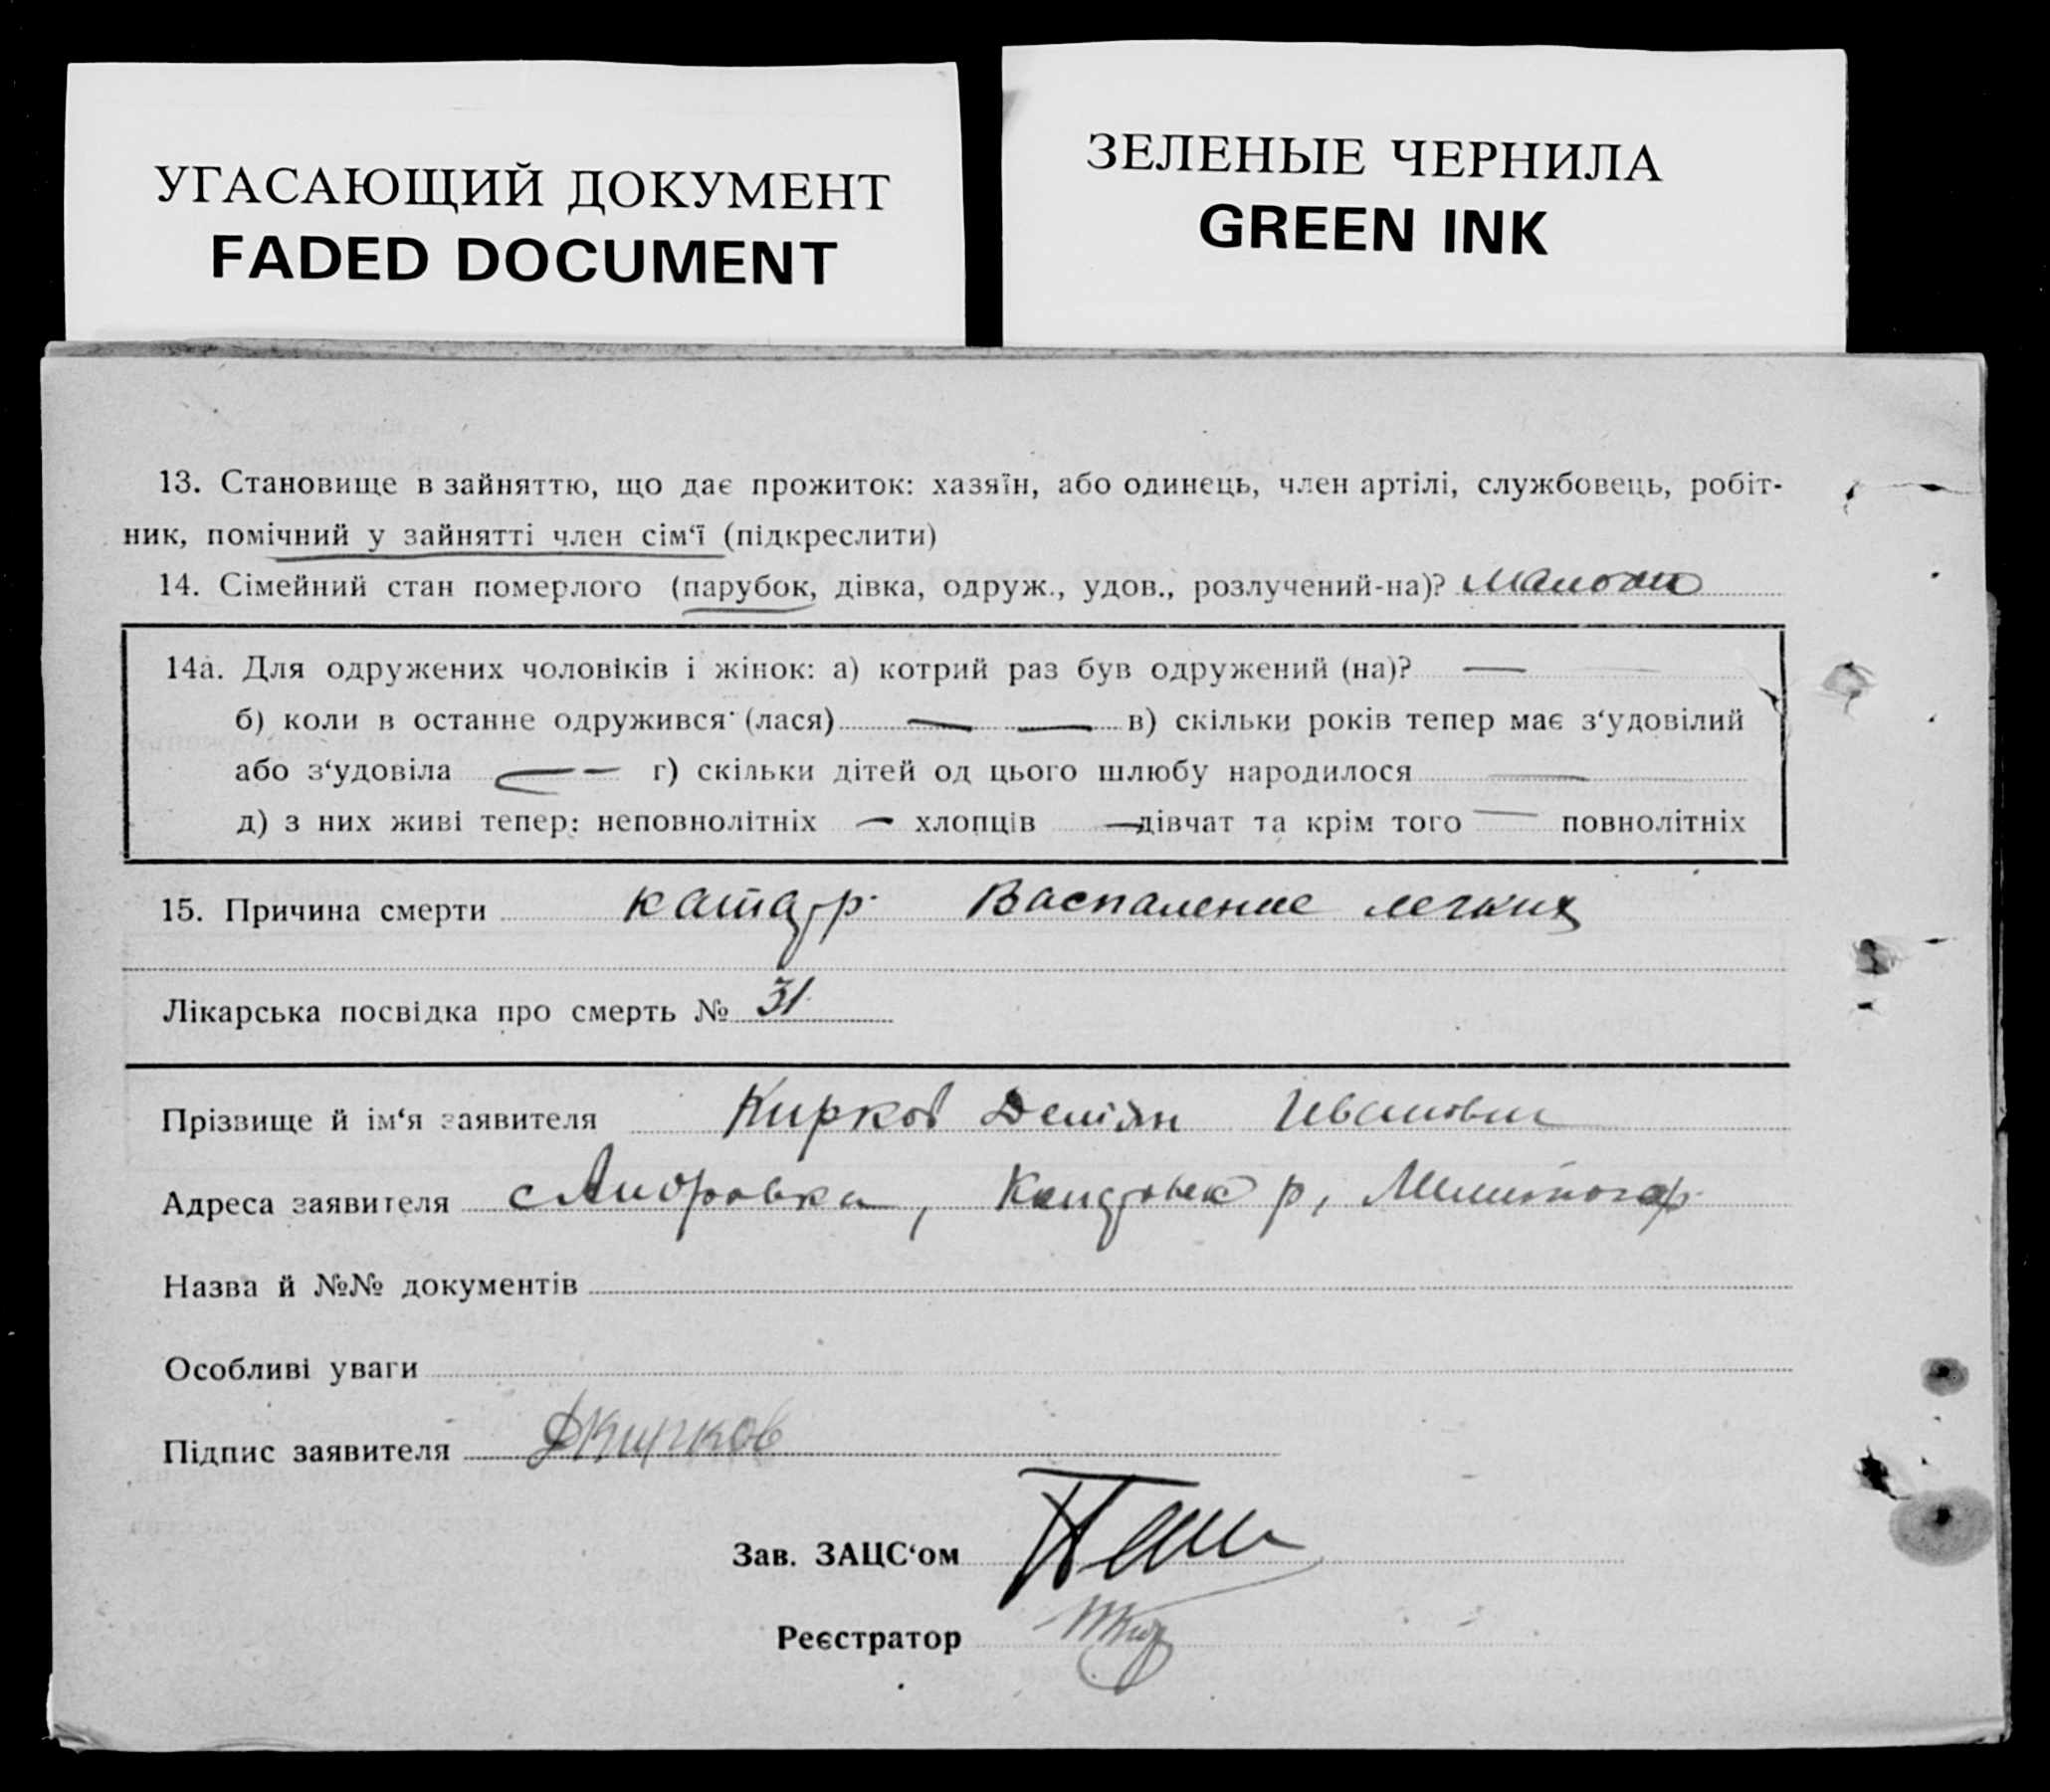 УГАСАЮЩИЙ ДОКУМЕНТ
FADED DOCUMENT
ЗЕЛЕНЫЕ ЧЕРНИЛА
GREEN INK
13. Становище в зайняттю, що дає прожиток: хазяїн, або одинець, член артілі, службовець, робіт-
ник, помічний у зайнятті член сім‘ї (підкреслити)
14. Сімейний стан померлого (парубок, дівка, одруж., удов., розлучений-на)?
14а. Для одружених чоловіків і жінок: а) котрий раз був одружений (на)? —
б) коли в останнє одружився (лася) — — в) скільки років тепер має з‘удовілий
або з‘удовіла — — г) скільки дітей од цього шлюбу народилося —
д) з них живі тепер: неповнолітніх — хлопців — дівчат та крім того — повнолітніх
15. Причина смерти катар Васпаление легких
Лікарська посвідка про смерть № 31
Прізвище й ім‘я заявителя Кирков Демян Иванович
Адреса заявителя с р,
Назва й №№ документів
Особливі уваги
Підпис заявителя ДКирков
Зав. ЗАЦС‘ом
Реєстратор